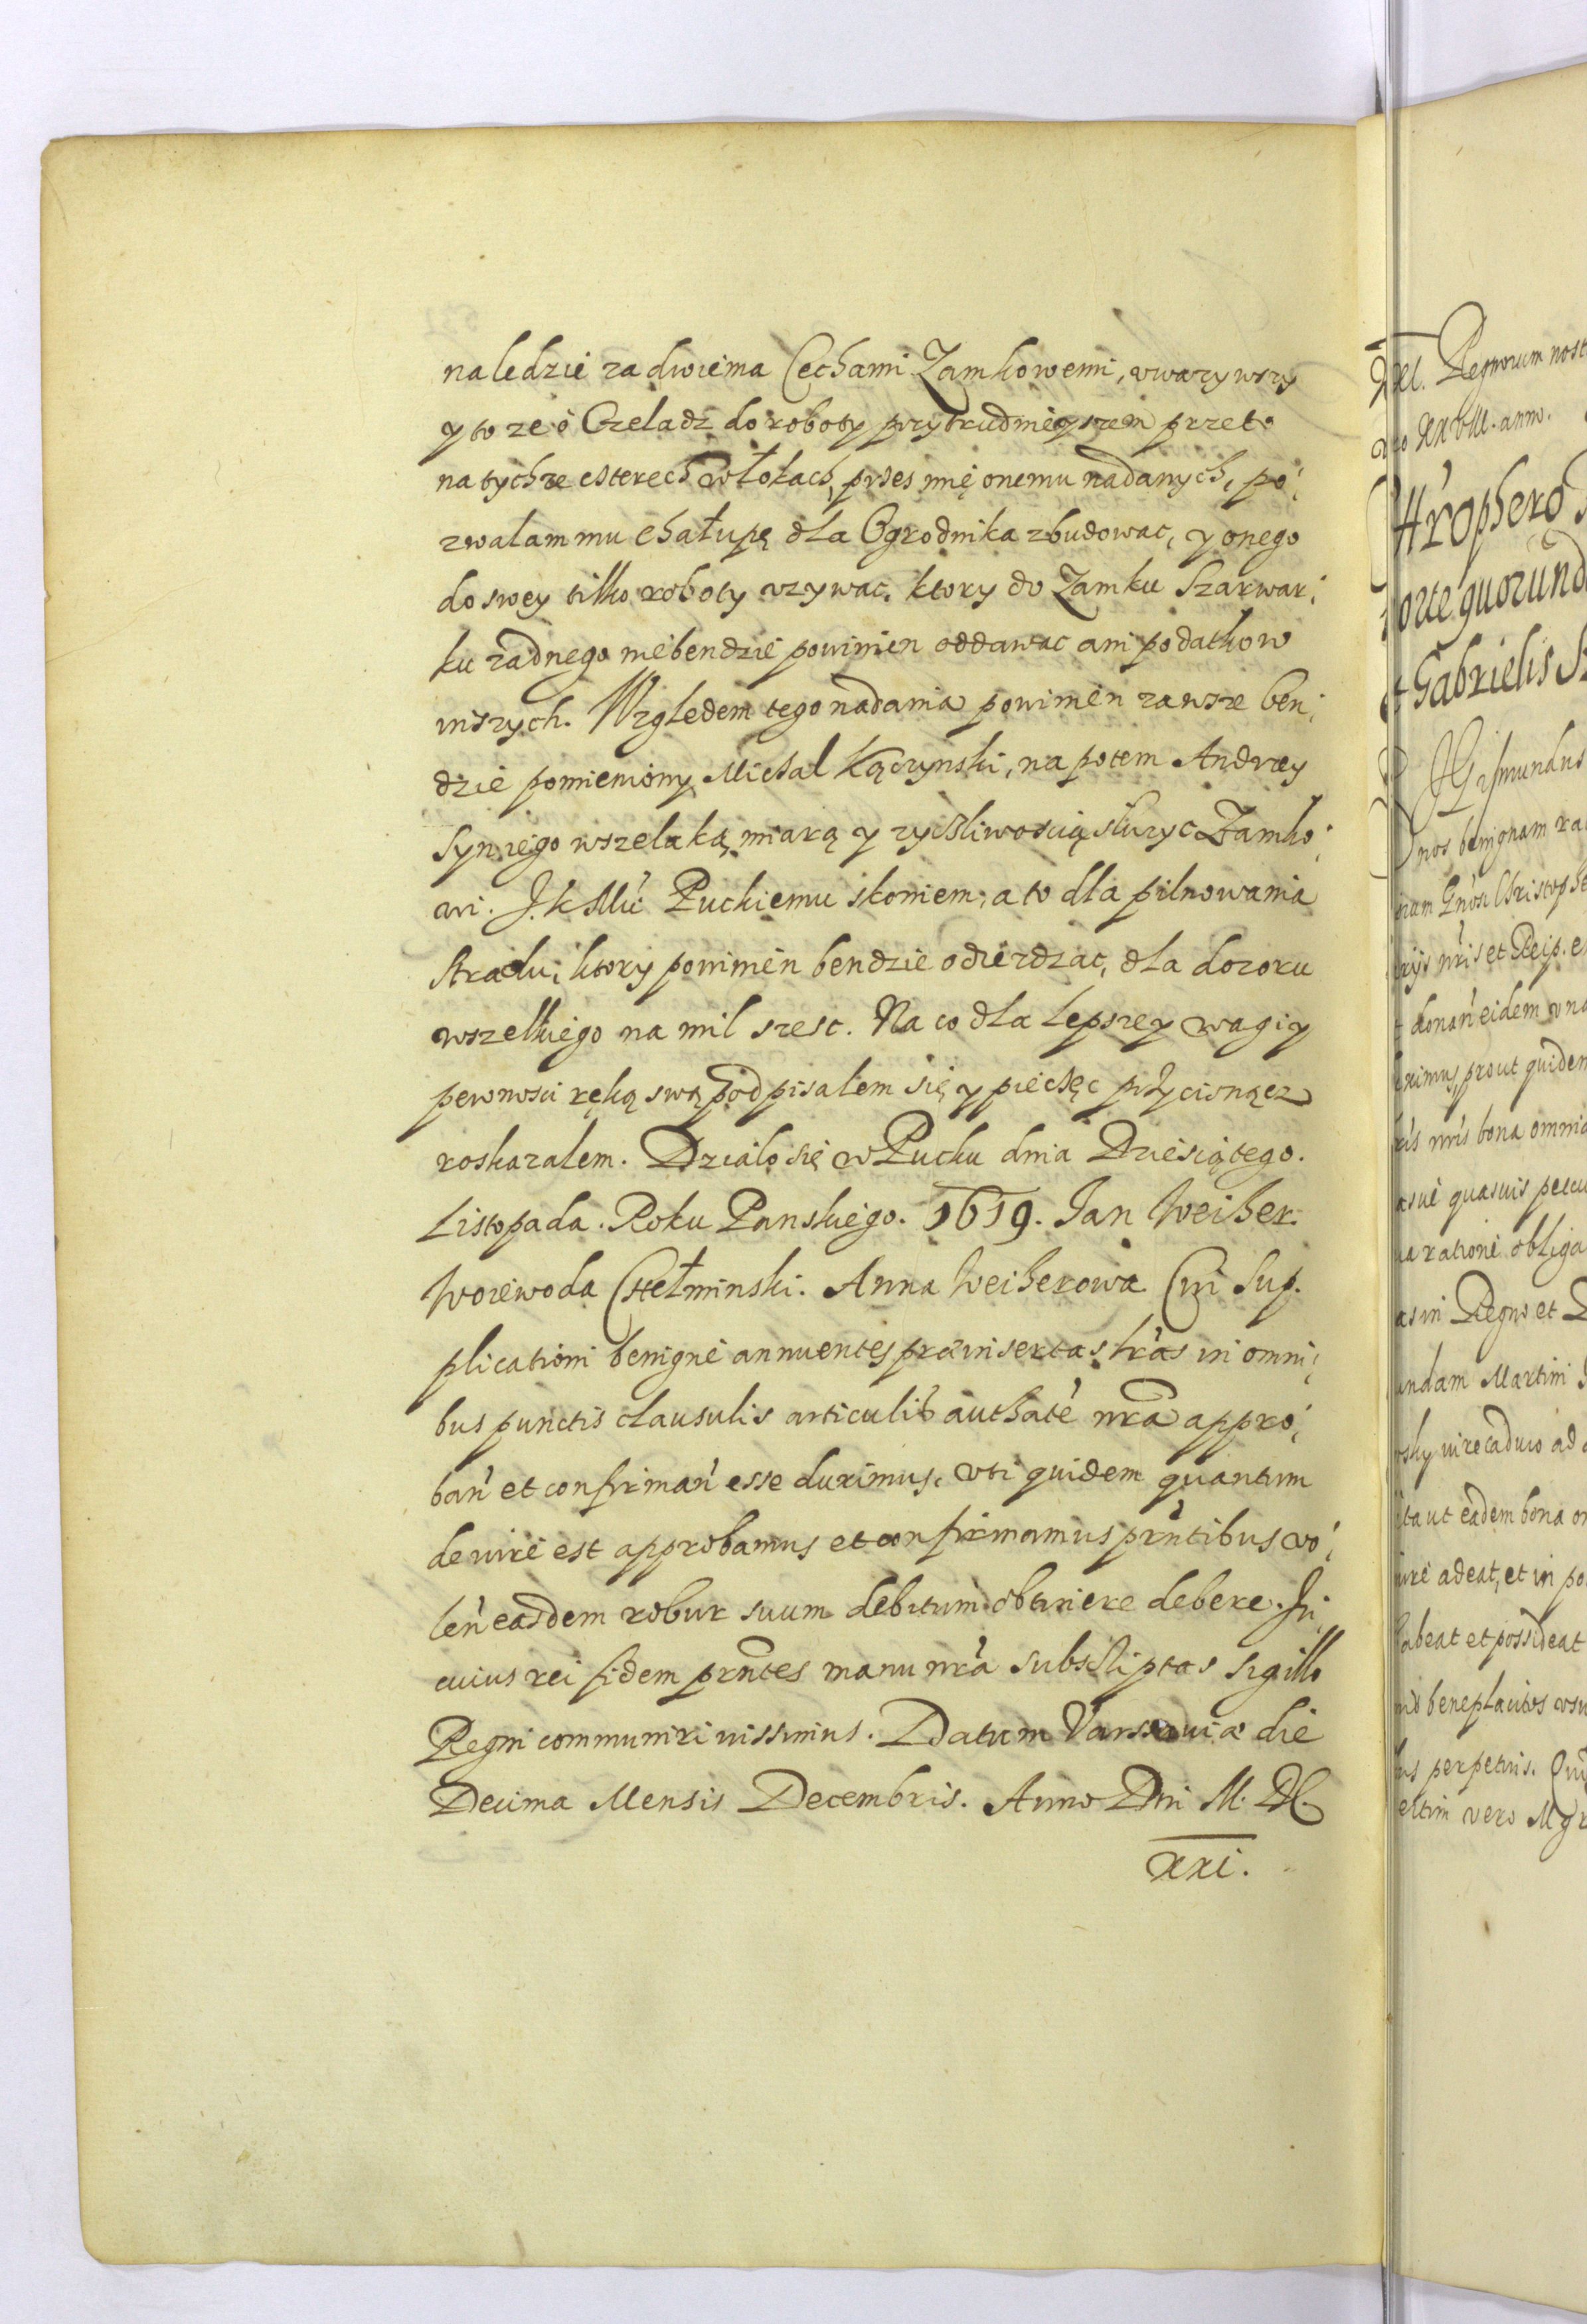 na ledzie za dwiema Cechami Zamkowemi, vwazywszy
y to ze o Czeladz do roboty przytrudnieyszem przeto
na tychze cżterech Włokach, przes mię onemu nadanych, po¡
zwalam mu chałupę dla Ogrodnika zbudowac, y onego
do swey tilko roboty vzywac. ktory do Zamku Szarwar¡
ku zadnego niebendzie powinien oddawac ani podatkow
inszych. Względem tego nadania powinien zawsze ben¡
dzie pomieniony Michal Kączynski, na potem Andrzey
Syn iego wszelaką miarą y zyczliwoscią sluzyc Zamko¡
wi. J. K Mci Puckiemu skoniem, a to dla pilnowania
Stradu, ktory powinien bendzie odiezdzac, dla dozoru
wszelkiego na mil szesc. Na co dla lepszey wagi y
pewnosci ręką swą podpisalem się y pieczęc przycisnącz
roskazalem. Dzialo się w Pucku dnia Dziesiątego.
Listopada. Roku Panskiego. 1619. Jan Weiher.
Woiewoda Chełminski. Anna Weiherowa. Cui Sup.
plicationi benigne annuentes præinsertas lras in omni¡
bus punctis clausulis articulis authate nra appro¡
ban et confirman esse duximus. vti quidem quantum
de iure est approbamus et confirmamus prntibus vo¡
len easdem robur suum debitum obtinere debere. In
cuius rei fidem prntes manu nra subscriptas sigillo
Regni communiri iussimus. Datum Varsaviæ die
Decima Mensis Decembris. Anno Dni M. DC.
xxi.
Regnorum nost
anno.
orte quorund
Gabrielis
nos benignam
nris et Reip.
donan eidem vna
ximus prout quidem
nris bona omnia
ratione obliga
in Regno et
undam Martini
caduco ad
ita ut eadem bona
adeat, et in po
habeat et possideat
beneplacitos
perpetuis.
vero